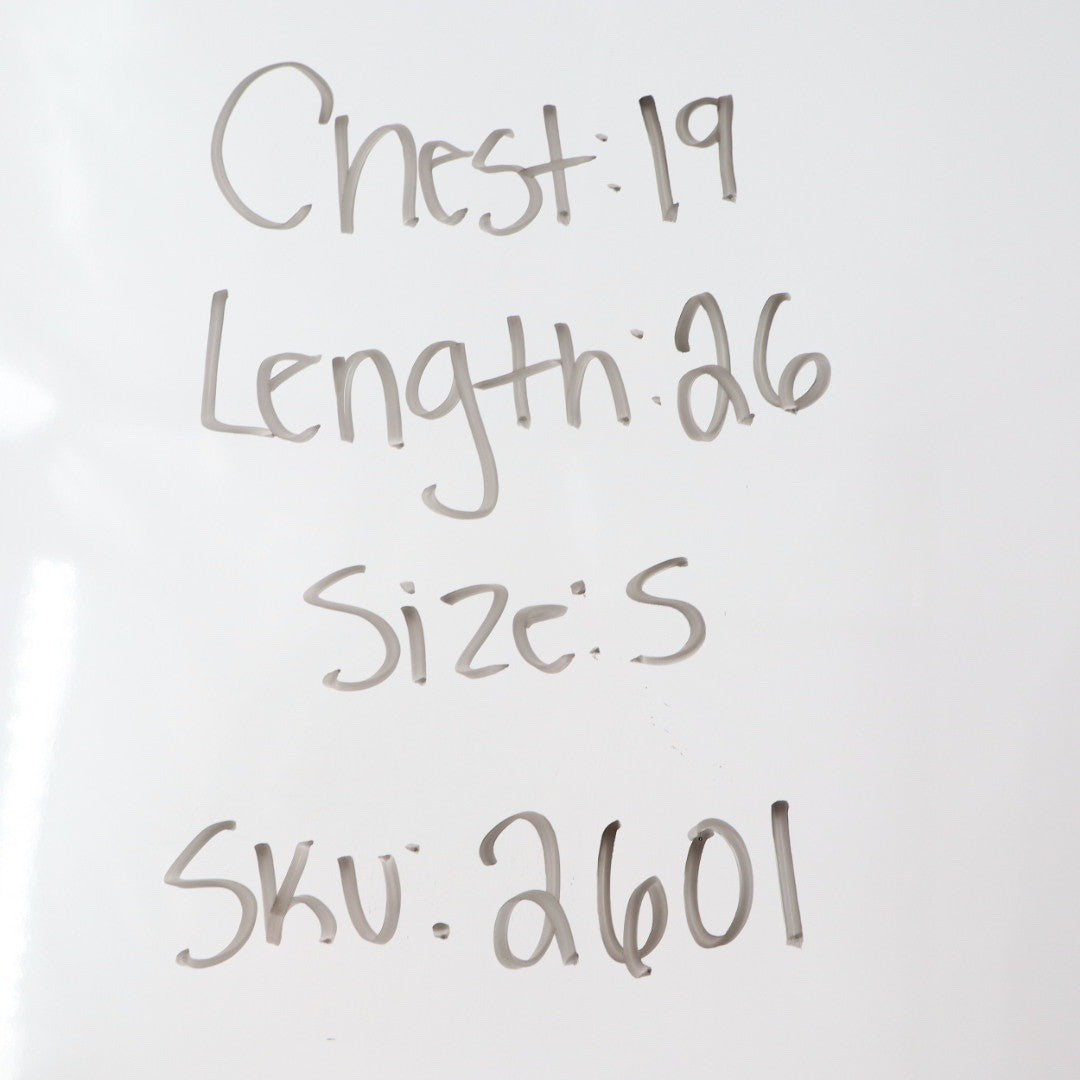 Chest: 19
Length: 26
Size: S
SKU: 2601